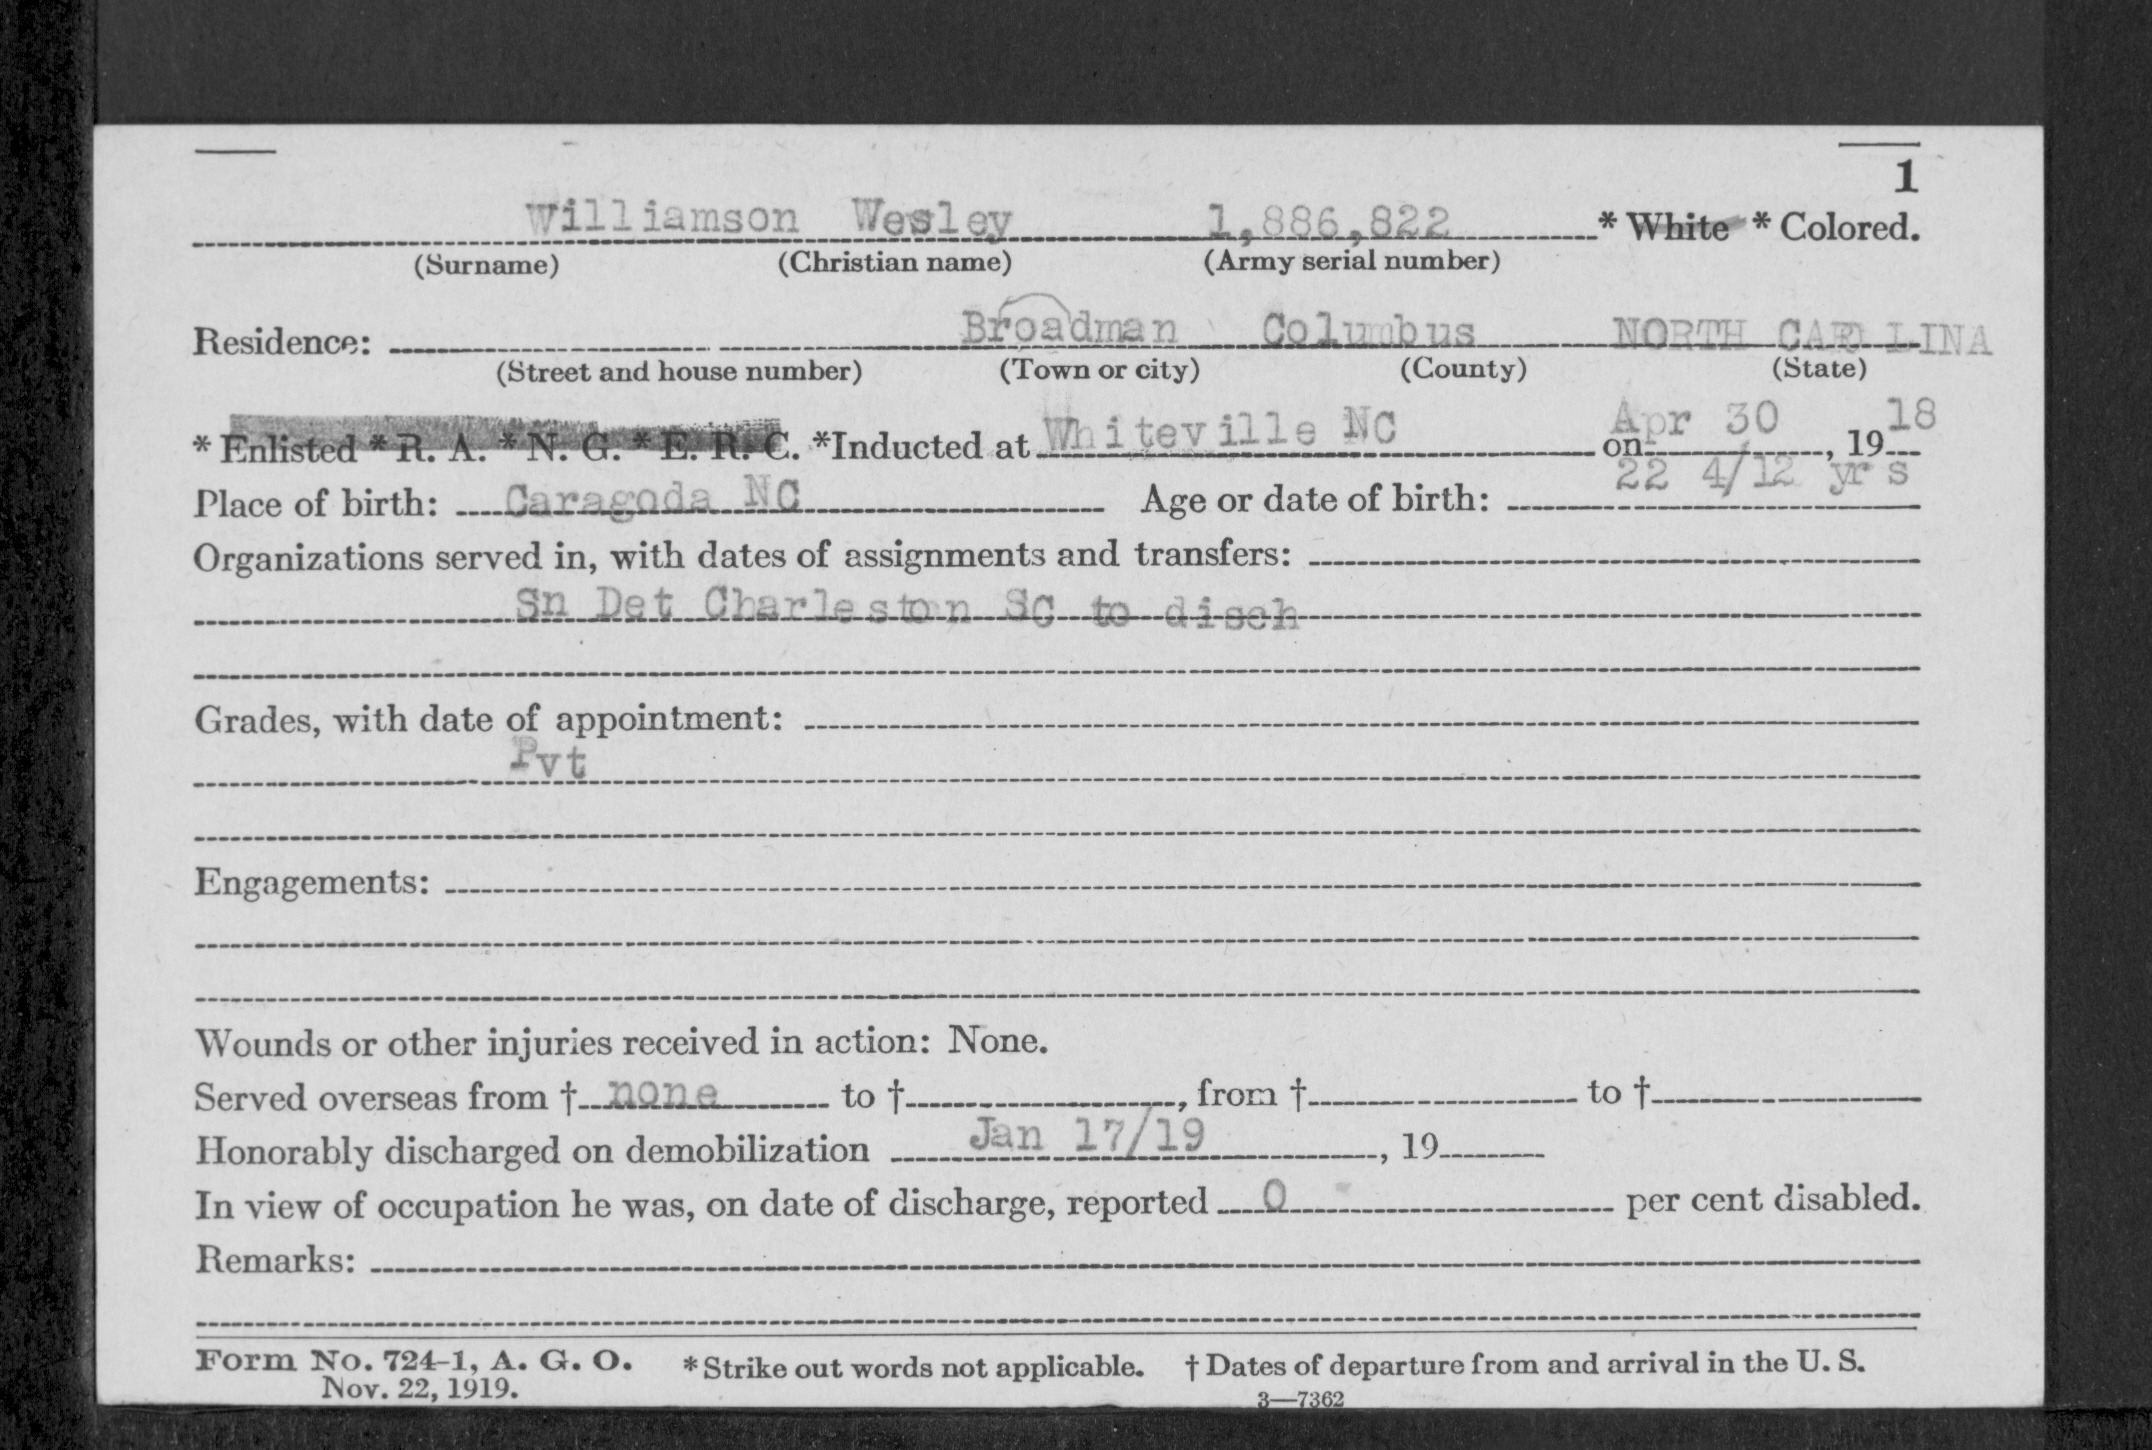 1
Williamson Wesley 1,886,822 * White * Colored.
(Surname) (Christian name) (Army serial number)
Residence: Broadman Columbus NORTH CAROLINA
(Street and house number) (Town or city) (County) (State)
* Enlisted * R. A. * N. G. * E. R. C. *Inducted at Whiteville NC on Apr 30, 19 18
Place of birth: Caragoda NC Age or date of birth: 22 4/12 yrs
Organizations served in, with dates of assignments and transfers:
Sn Det Charleston SC to disch
Grades, with date of appointment:
Pvt
Engagements:
Wounds or other injuries received in action: None.
Served overseas from † none to †, from † to †
Honorably discharged on demobilization Jan 17/19, 19
In view of occupation he was, on date of discharge, reported 0 per cent disabled.
Remarks:
Form No. 724-1, A. G. O. * Strike out words not applicable. † Dates of departure from and arrival in the U. S.
Nov. 22, 1919. 3—7362